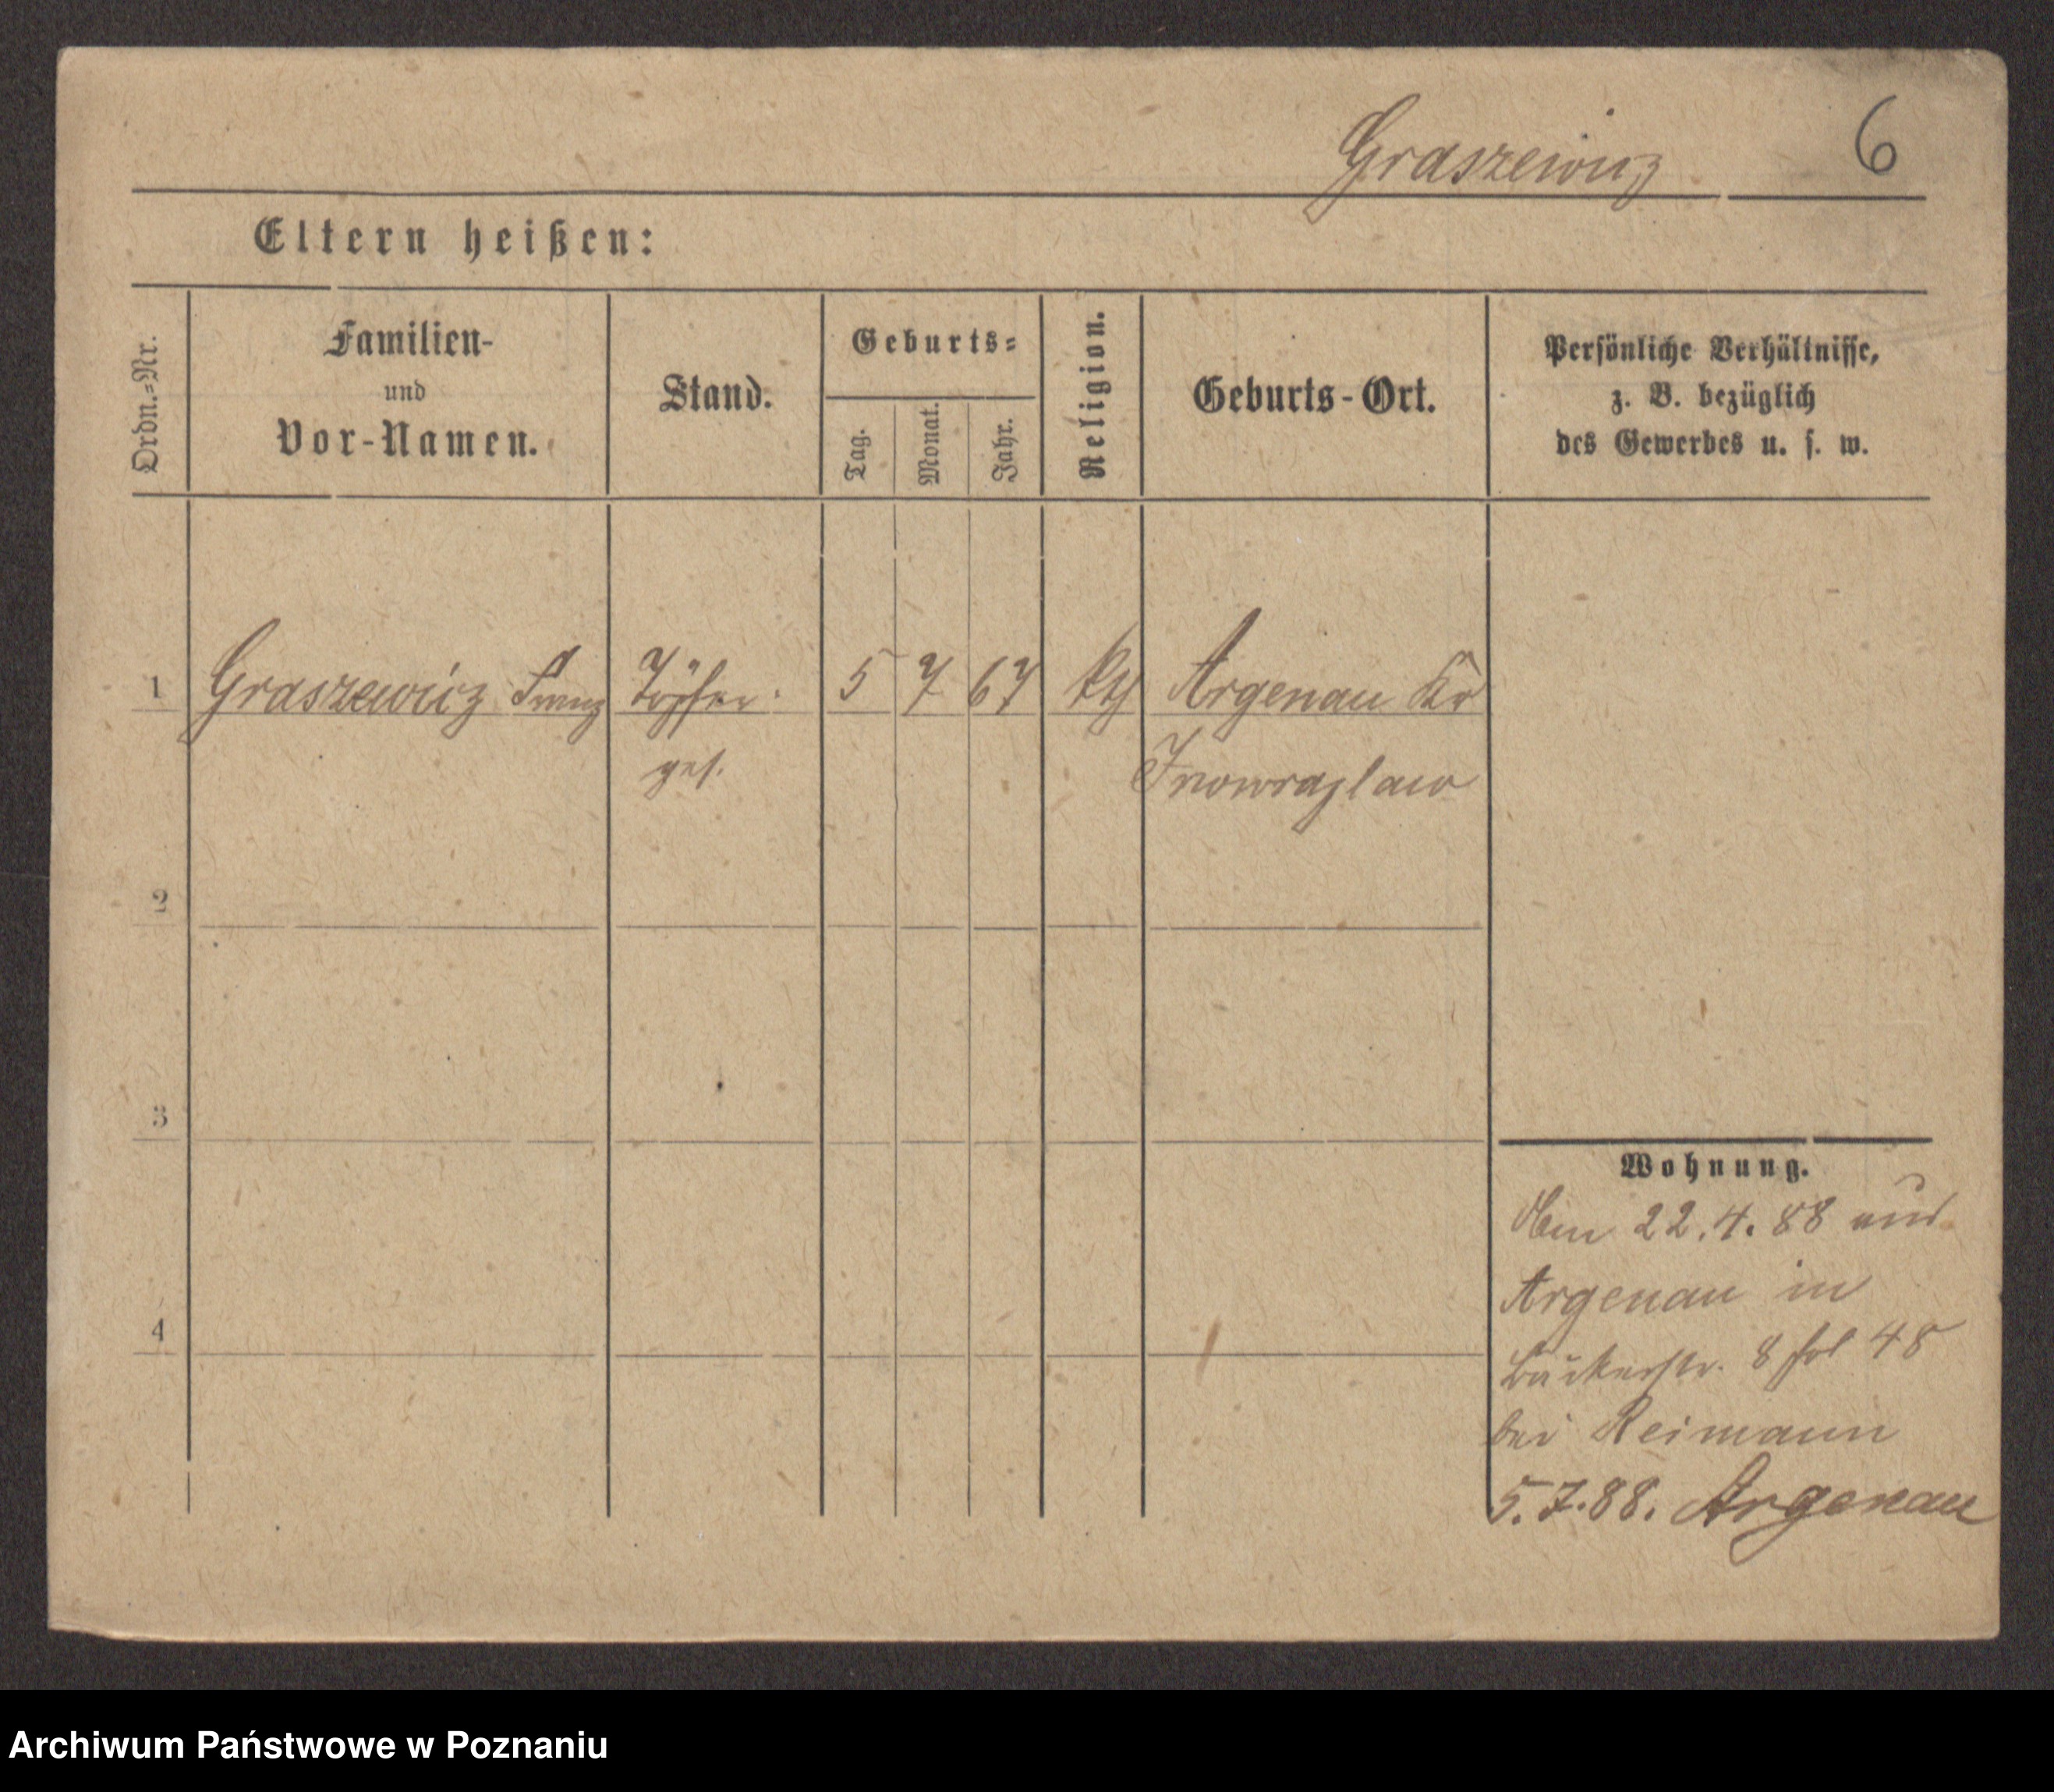 Graszewicz 6
Eltern heißen:
Ordn.=Nr.
Familien-
und
Vor-Namen.
Stand.
Geburts=
Tag.
Monat.
Jahr.
Religion.
Geburts-Ort.
Persönliche Verhältnisse,
z. B. bezüglich
des Gewerbes u. s. w.
1 Graszewicz Franz Töpfer. 5 7 67 kth Argenau Kr
ges. Inowrazlaw
2
3
4
Wohnung.
22.4.88 aus
Argenau in
Bäckerstr. 8 fol 48
bei Reimann
5.7.88. Argenau
Archiwum Państwowe w Poznaniu